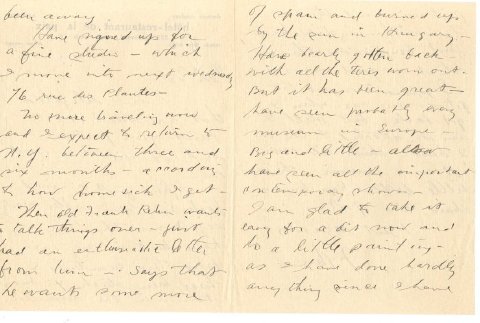 been away
Have signed up for
a fine studio - which
I move into next Wednesday
76 rue des Plantes -
No more traveling now
and I expect to return to
N.Y. between three and
six months - according
to how homesick I get -
Then old Frank Rehn wants
to talk things over - just
had an enthusiastic letter
from him - says that
he wants some more
of Spain and burned up
by the sun in Hungary -
Have nearly gotten back
with all the tires worn out -
But it has been great -
have seen probably every
museum in Europe -
Big and little - also
have seen all the important
contemporary shows -
I am glad to take it
easy for a bit now and
do a little painting -
as I have done hardly
anything since I have